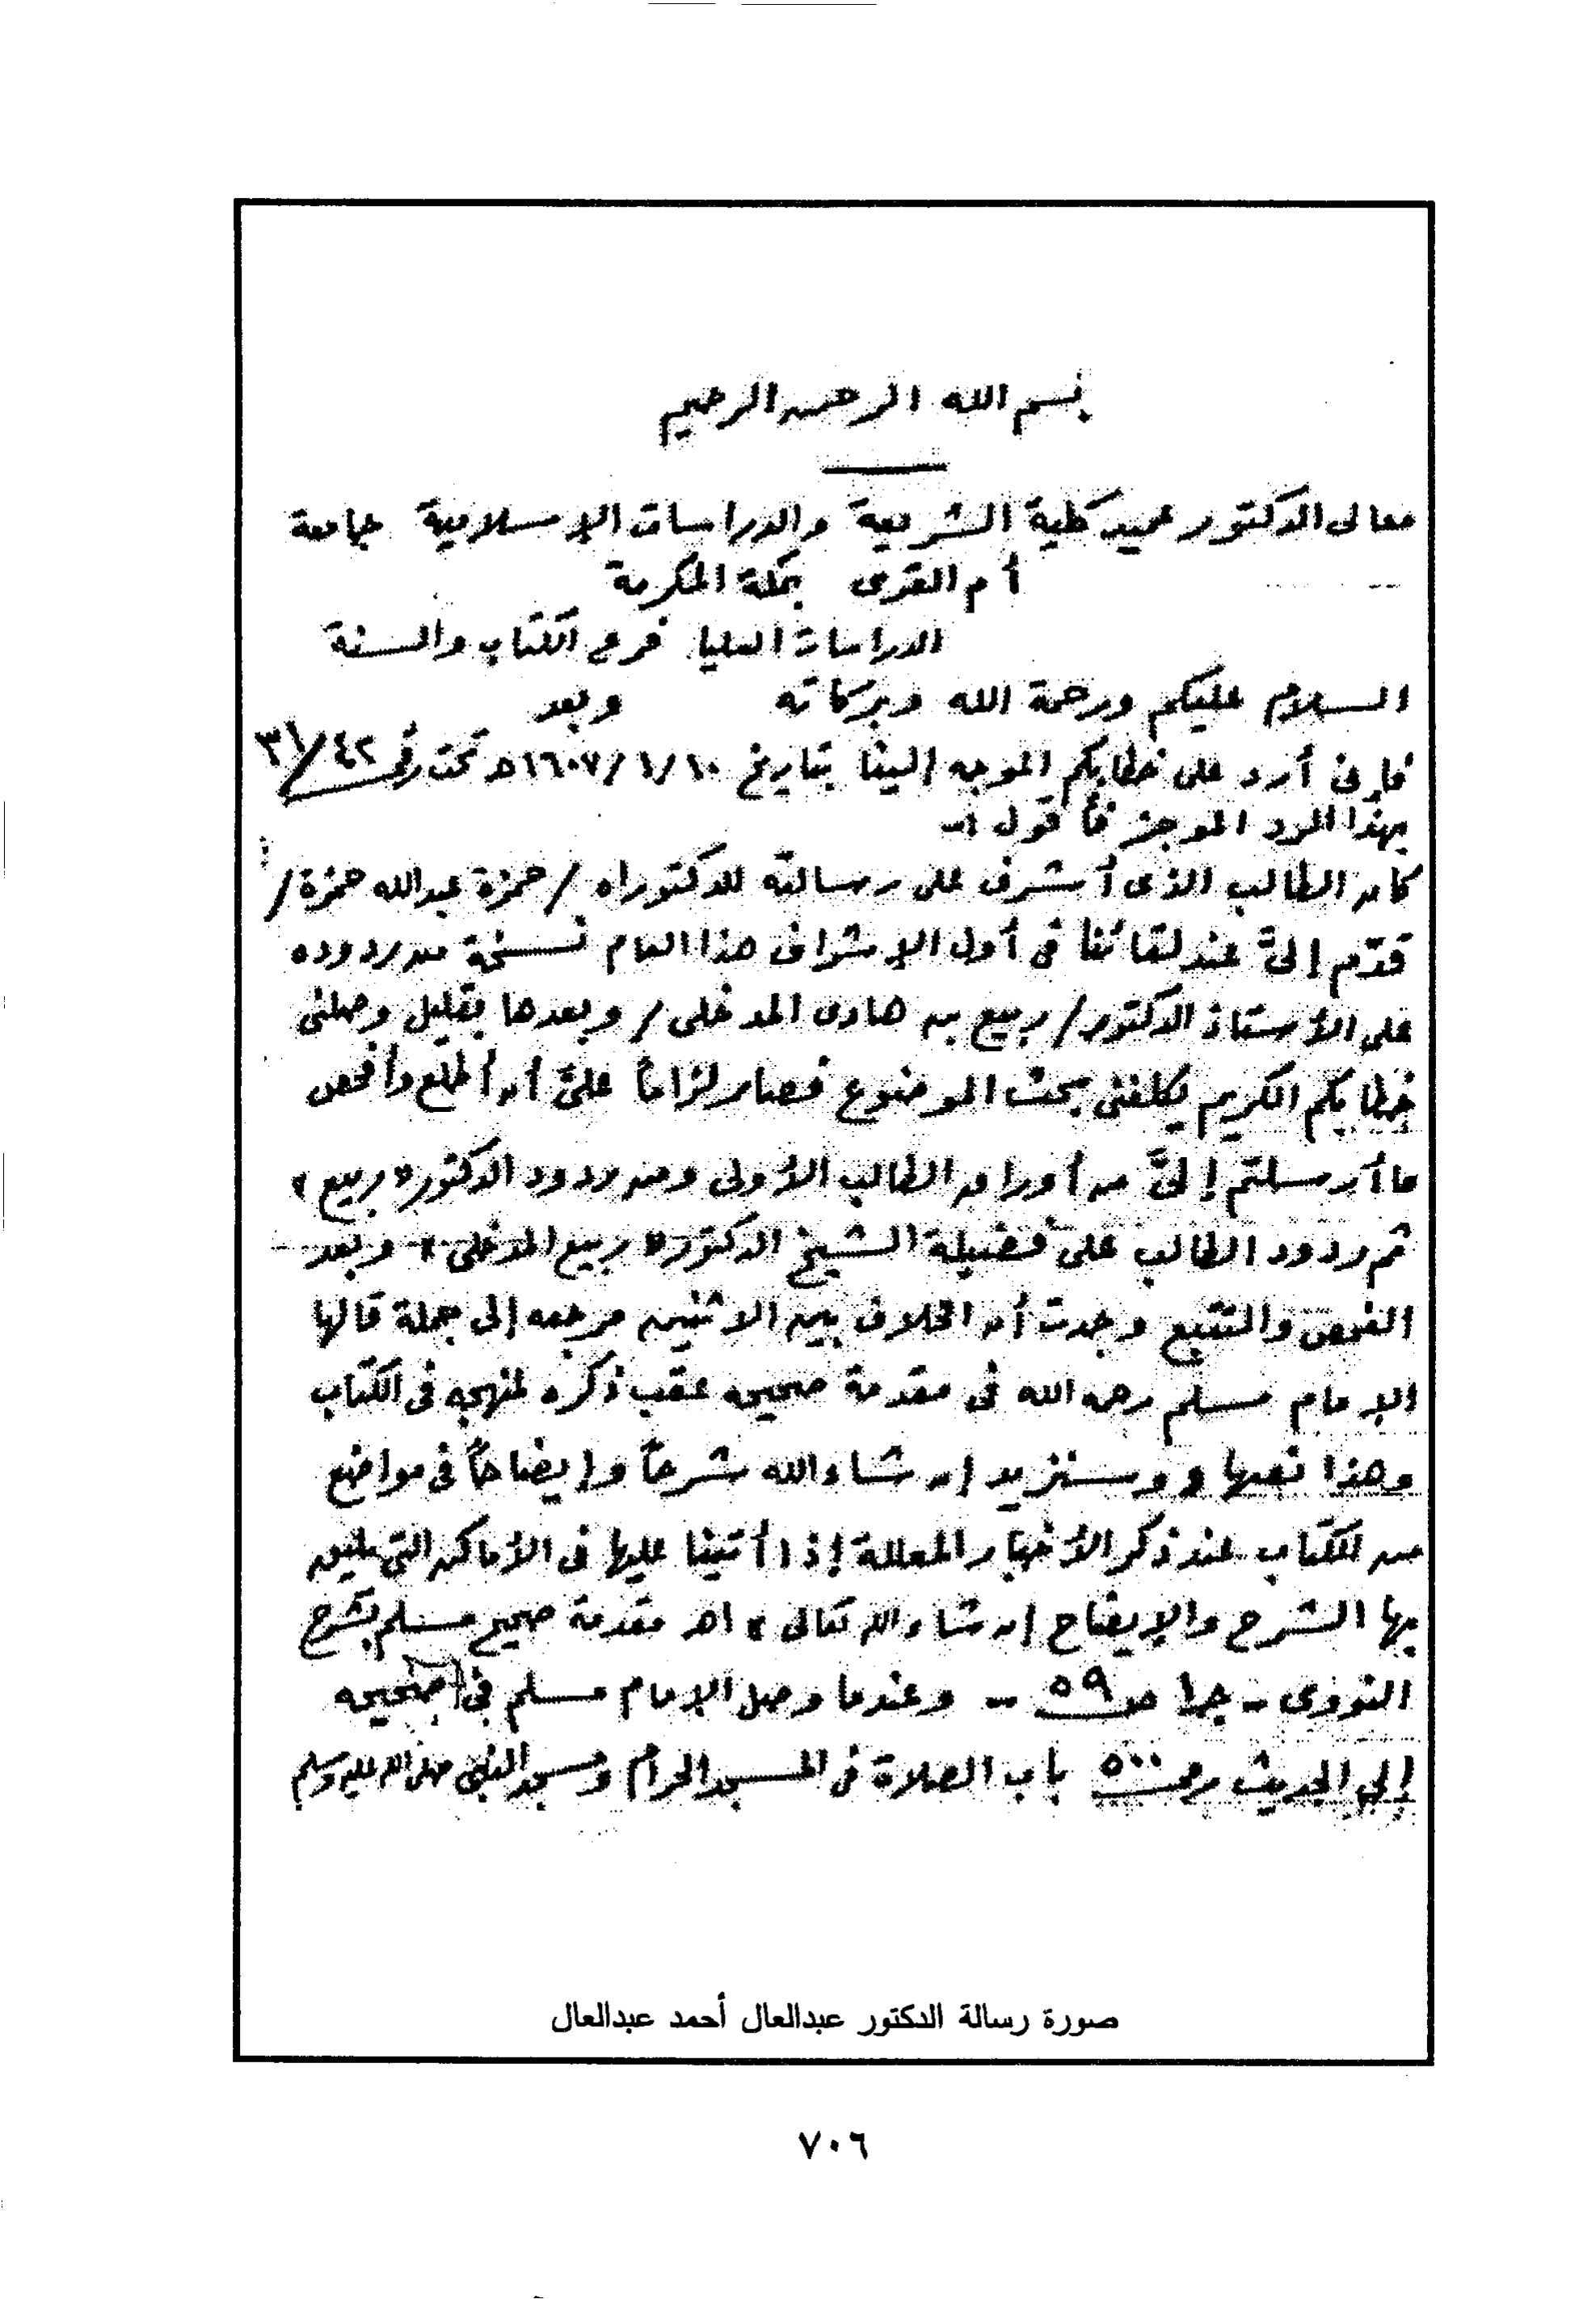 بسم الله الرحمن الرحيم
معالى الدكتور عميد كلية الشريعة والدراسات الإسلامية جامعة
أم القرى بمكة المكرمة
الدراسات العليا فرع الكتاب والسنة
السلام عليكم ورحمة الله وبركاته وبعد
فإنى أرد على خطابكم الموجه إلينا بتاريخ ١٠/١/١٤٠٧هـ تحت رقم ٣١/٤٢
بهذا الرد الموجز فأقول :-
كان الطالب الذى أشرف على رسالته للدكتوراه / حمزة عبدالله حمزة /
قدّم إلىَّ عند لقائنا فى أول الإشراف هذا العام نسخة من ردوده
على الأستاذ الدكتور / ربيع بن هادى المدخلى / وبعدها بقليل وصلنى
خطابكم الكريم يكلفنى بحث الموضوع فصار لزاماً علىَّ أن أطلع وأفحص
ما أرسلتم إلىَّ من أوراق الطالب الأولى ومن ردود الدكتور « ربيع »
ثم ردود الطالب على فضيلة الشيخ الدكتور « ربيع المدخلى » وبعد
الفحص والتتبع وجدت أن الخلاف بين الاثنين مرجعه إلى جملة قالها
الإمام مسلم رحمه الله فى مقدمة صحيحه عقب ذكره لمنهجه فى الكتاب
وهذا نصها « وسنزيد إن شاء الله شرحاً وإيضاحاً فى مواضع
من الكتاب عند ذكر الأخبار المعللة إذا أتينا عليها فى الأماكن التى يليق
بها الشرح والإيضاح إن شاء الله تعالى » اهـ مقدمة صحيح مسلم بشرح
النووى - جـ١ صـ ٥٩ - وعندما وصل الإمام مسلم فى صحيحه
إلى الحديث رقم ٥٠٠ باب الصلاة فى المسجد الحرام ومسجد النبى صلى الله عليه وسلم
صورة رسالة الدكتور عبدالعال أحمد عبدالعال
٧٠٦